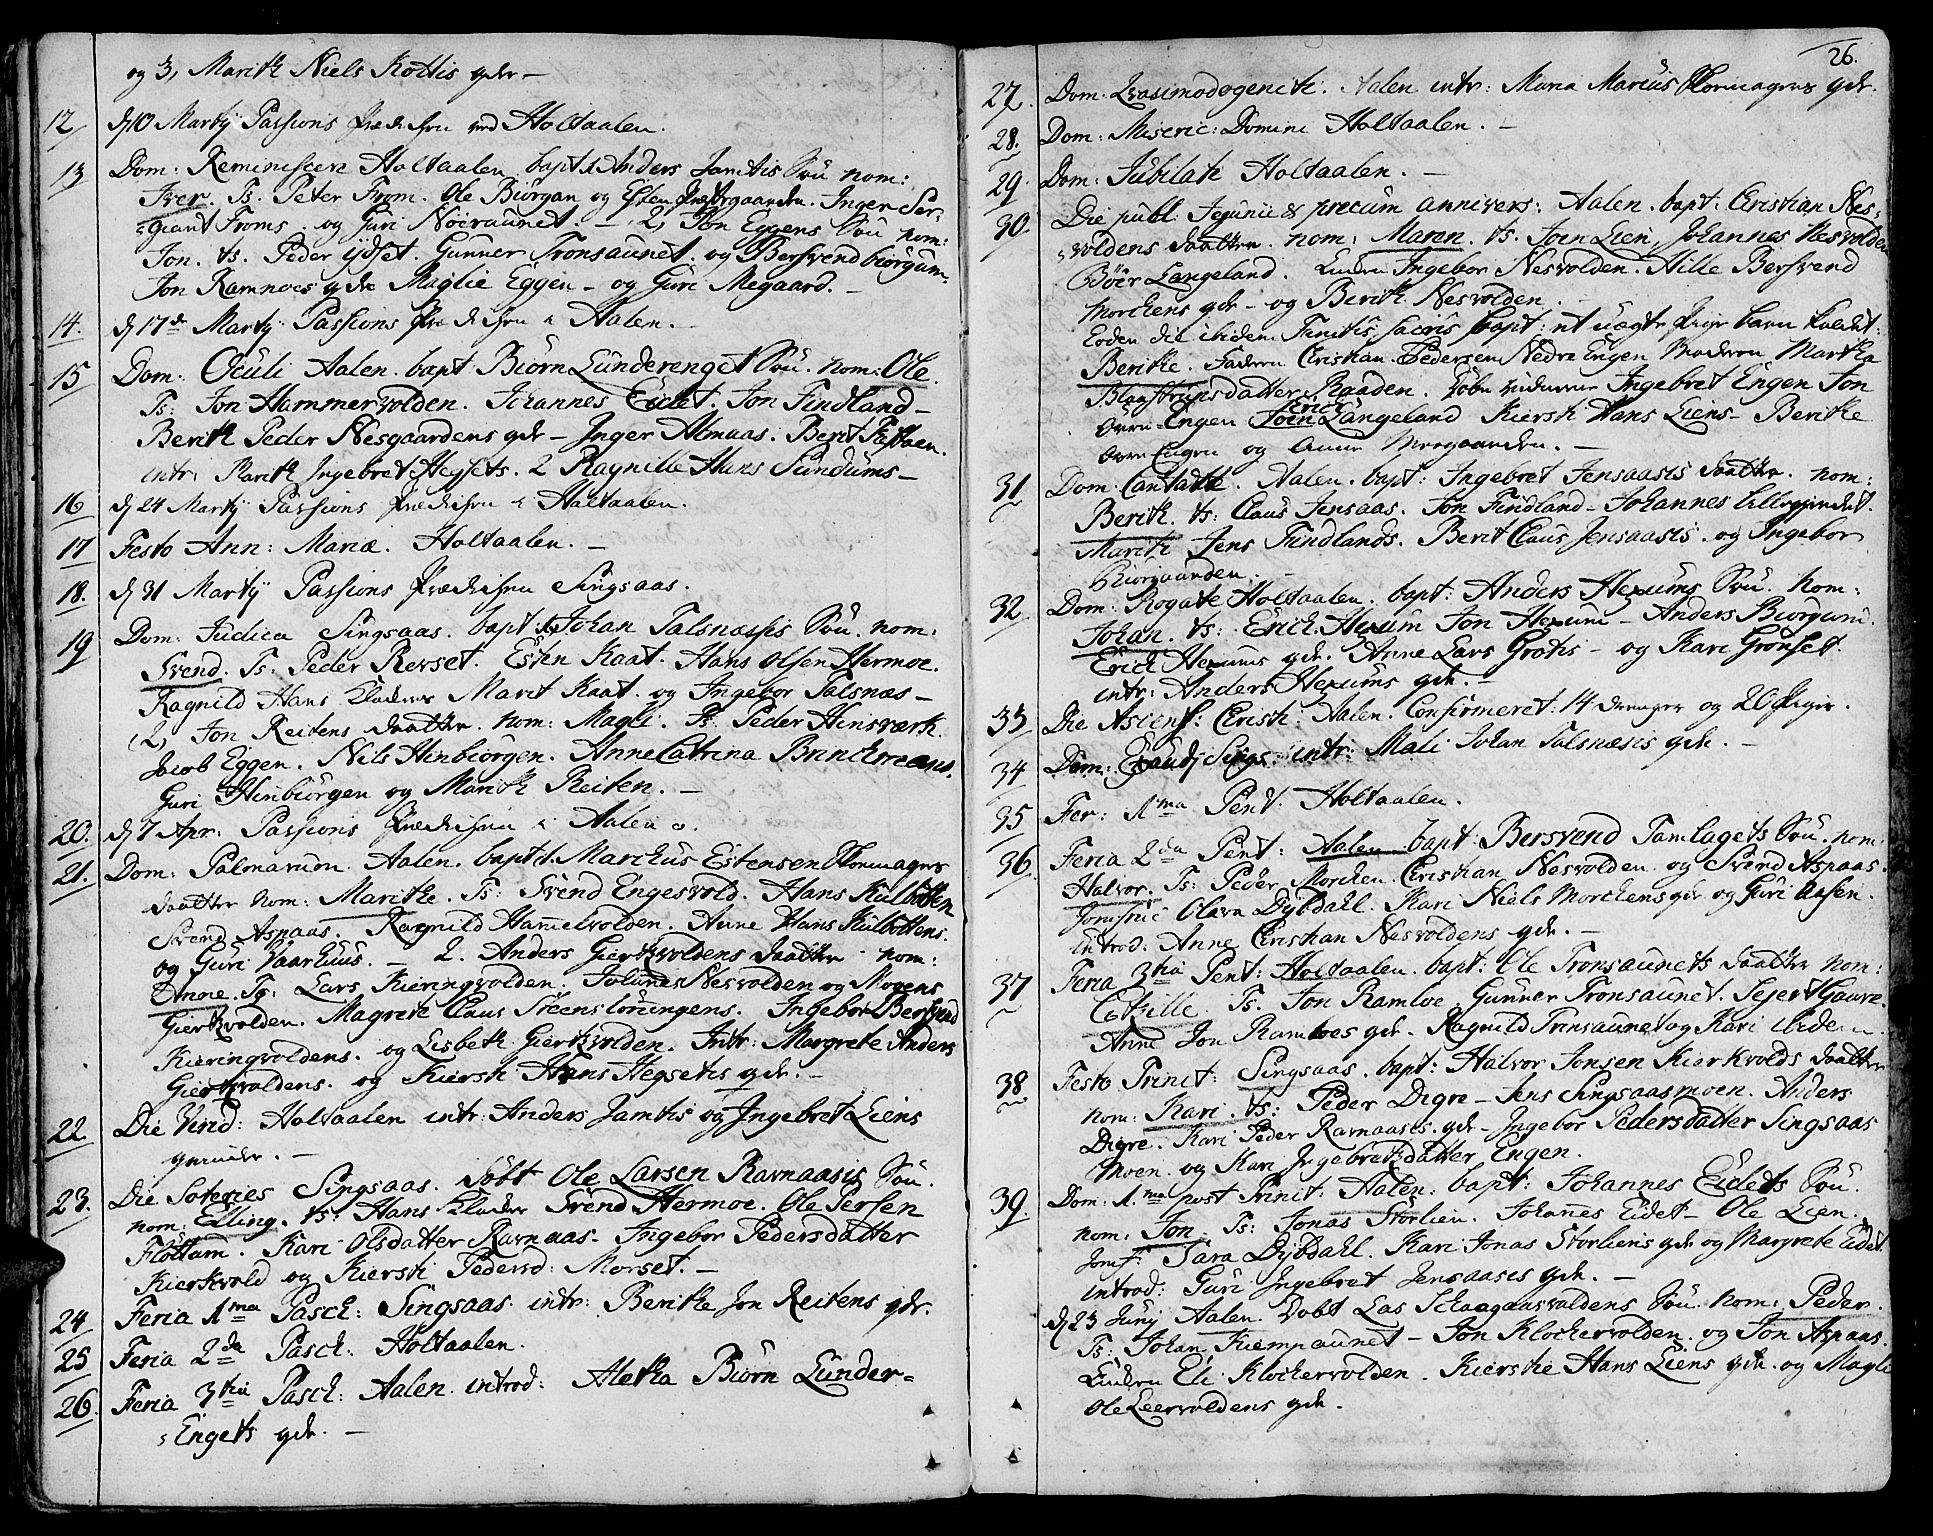 og 3, Marith Niels Kottis qde –
12 d 10 Martij Passions Prædiken ved Holtaalen.
13 Dom: Reminiscere Holtaalen bapt: 1 Anders Jamtis Søn nom:
Iver. Ts. Peter From. Ole Biörgan og Esten Inger Ser:
:giant Froms. og Guri Nöiraunet. – 2, Jon Eggens Søn nom:
Jon. ts. Peder ydset. Gunner Tronsaunet. og Bersvend biorgum
Jon Ramnoes qde Maglie Eggen – og Guri Megaard. –
14. d 17de Martij Passions Prædiken i Aalen. –
15 Dom: Oculi Aalen. bapt Biörn Lunderenget Søn. nom: Ole.
Ts: Jon Hammervolden. Johannes Eidet. Jon Findland –
Berith Peder Nesgaardens qde – Inger Almaas. Berit
intr: Marith Ingebret Hegsets. 2 Ragnille Hans Sundums –
16 d 24 Martij Passions Prædiken i Holtaalen.
17 Festo Ann: Mariæ. Holtaalen. –
18. d 31 Martij Passions Prædiken Singsaas.
19 Dom: Judica Singsaas. bapt: 1, Johan Talsnæssis Søn. nom:
Svend. Ts. Peder Revset. Esten Kaat. Hans Olsen Hermoe.
Ragnild Hans Marit Kaat. og Ingebor Talsnæs –
(2) Jon Reitens Daatter. nom: Magli. Ts. Peder Hinsværk.
Jacob Eggen. Nils Hinbiörgen. Anne Catrina Brinckmans.
Guri Hinbiörgen og Marith Reiten. –
20. d 7 Apr: Passions Prædiken i Aalen.
21. Dom: Palmarum. Aalen. bapt: 1. Marchus Estensen
Daatter nom: Marithe. Ts: Svend Engesvold. Hans Kulbotten
Svend Aspaas. Ragnild Hammelvolden. Anne Hans Kulbottens.
og Guri Vaarhuus. – 2. Anders Giertvoldens Daatter nom:
Anne. Ts: Lars Kieringvolden. Johannes Nesvolden og Mogens
Giertvolden. Magrete Claus Steenslöningens. Ingebor Bersvend
Kieringvoldens. og Lisbeth Giertvolden. Intr: Margrete Anders
Giertvoldens. og Kiersti Hans Hegsetis qde. –
22 Die Virid: Holtaalen intr: Anders Jamtis og Ingebret Liens
–
23. Die Soteries Singsaas. Döbt Ole Larsen Ravnaasis Søn.
nom: Elling. ts: Hans Svend Hermoe. Ole Persen
Flottum. Kari Olsdatter Ravnaas – Ingebor Pedersdatter
Kierkvold og Kiersti Pedersd: Morset. –
24 Feria 1ma Pasch: Singsaas. intr: Berithe Jon Reitens qde.
25 Feria 2da Pasch: Holtaalen.
26. Feria 3tia Pasch: Aalen. introd: Aletha Biörn Lunder=
:Engets qde. –
26.
27. Dom: Qvasimodogeniti. Aalen intr: Maria Marcus qde.
28. Dom: Miseric: Domini Holtaalen. –
29 Dom: Jubilate Holtaalen. –
30. Die publ: Jejunii & precum annivers: Aalen. bapt: Christian Nes=
:voldens Daatter. nom: Maren. ts. Joen Lien, Johannes Nesvolden
Böör Langeland. Ingebor Nesvolden. Hille Bersvend
Morchens qde – og Berith Nesvolden.
Eoden die ibidem Finitis sacris bapt: et uægte Pige barn kaldet:
Berithe. Faderen Christian Pedersen Nedre Engen Moderen Martha
Raaden. Ingebret Engen Jon
övre Engen Erich Langeland Kiersti Hans Liens – Berithe
övre Engen og Anne Moegaarden. –
31 Dom: Cantate. Aalen. bapt: Ingebret Jensaasis Daatter. nom:
Berith. ts: Claus Jensaas. Jon Findland – Johannes
Marith Jens Findlands. Berit Claus Jensaasis. og Ingebor
Biörgaarden. –
32 Dom: Rogate Holtaalen. bapt: Anders Hexums Søn. nom:
Johan. ts: Erich Hexum Jon Hexum – Anders Biorgum.
Erich Hexums qde. Anne Lars Grötis – og Kari Grönset.
intr: Anders Hexums qde. –
33 Die Ascens: Christi: Aalen. Confirmeret: 14 drenger og 20 Piger.
34 Dom: Exaudj Sings: intr: Mali Johan Talsnæsis qde. –
35 Fer: 1ma Pent: Holtaalen.
36. Feria 2da Pent: Aalen bapt: Bersvend Tamlagets Søn. nom:
Halvor. Ts: Peder Morchen. Christian Nesvolden og Svend Aspaas.
Jomfrue Olava Dybdahl. Kari Niels Morchens qde og Guri Aasen.
introd: Anne Christian Nesvoldens qde. –
37 Feria 3tia Pent: Holtaalen. bapt: Ole Tronsaunets Daatter nom:
Ts. Jon Ramloe. Gunner Tronsaunet. Sejert Gaare.
Anne Jon Ramloes qde. Ragnild Tronsaunet og Kari ibidem.
38 Festo Trinit: Singsaas. bapt: Halvor Jonsen Kierkvolds Daatter
nom: Kari. ts: Peder Digre – Jens Singsaasmoen. Anders
Digre. Kari Peder Ravnaases qde – Ingebor Pedersdatter Singsaas
moen. og Kari Ingebretsdatter Engen.
39. Dom: 1ma post Trinit: Aalen. bapt: Johannes Eidets Søn.
nom: Jon. Ts: Jonas Storlien. Johannes Eidet – Ole Lien.
Jomf: Sara Dybdahl. Kari Jonas Storliens qde og Margrete Eidet.
introd: Guri Ingebret Jensaases qde. –
d 23 Junj Aalen. Döbt Las Søn. nom: Peder.
Ts: Johan Kiempaunet – Jon Klockervolden. og Jon Aspaas.
Eli Klockervolden. Kiersthe Hans Liens qde. og Magli
Ole Leervoldens qde.